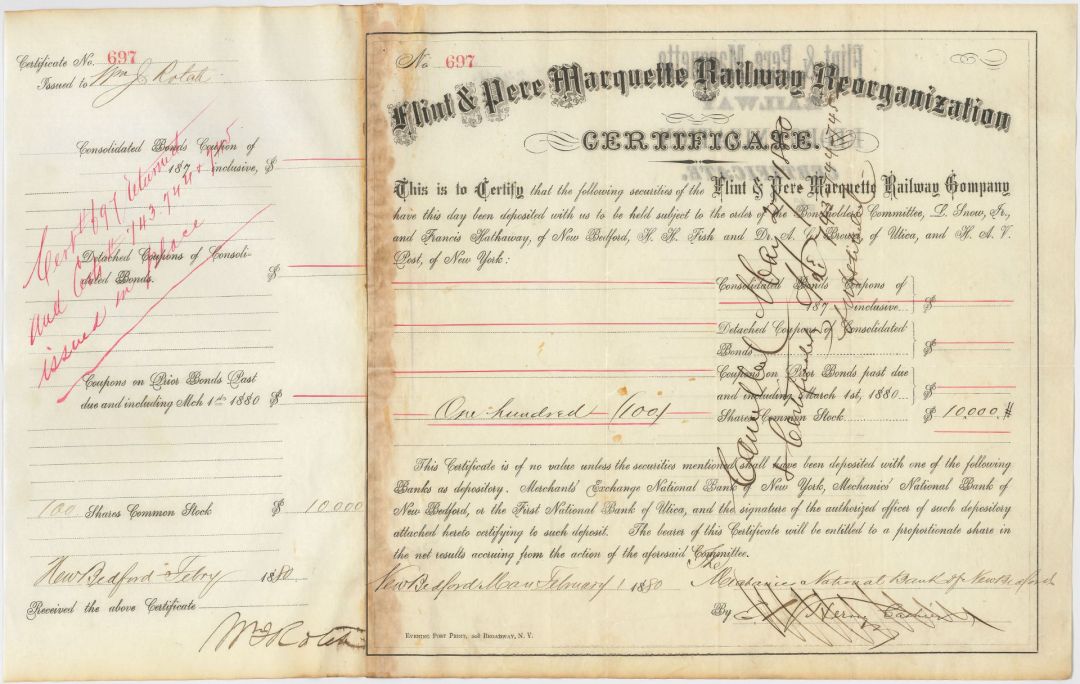 Certificate No. 697
Issued to Wm J. Rotch
Consolidated Bonds Coupon of
187 inclusive, $
Detached Coupons of Consoli-
dated Bonds. $
Cert # 697 returned
and Certs 743. 744 & 745
issued in place
Coupons on Prior Bonds Past
due and including Mch 1st 1880 $
100 Shares Common Stock $ 10000
New Bedford Febry 1880
Received the above Certificate
Wm J Rotch
No 697
Flint & Pere Marquette Railway Reorganization
CERTIFICATE.
This is to Certify that the following securities of the Flint & Pere Marquette Railway Company
have this day been deposited with us to be held subject to the order of the Bondholders Committee, L. Snow, Jr.,
and Francis Hathaway, of New Bedford, H. H. Fish and Dr. A. G. Brower, of Utica, and H. A. V.
Post, of New York:
Consolidated Bonds Coupons of
187 inclusive $
Detached Coupons of Consolidated
Bonds $
Coupons on Prior Bonds past due
and including March 1st, 1880 $
One hundred (100) Shares Common Stock $ 10,000.#
Cancelled May 27/1880
& Certificates
This Certificate is of no value unless the securities mentioned shall have been deposited with one of the following
Banks as depository. Merchants' Exchange National Bank of New York, Mechanics' National Bank of
New Bedford, or the First National Bank of Utica, and the signature of the authorized officer of such depository
attached hereto certifying to such deposit. The bearer of this Certificate will be entitled to a proportionate share in
the net results accruing from the action of the aforesaid Committee.
New Bedford Mass February 1880
The Mechanics National Bank of New Bedford
By Cashier
EVENING POST PRINT, 208 BROADWAY, N. Y.